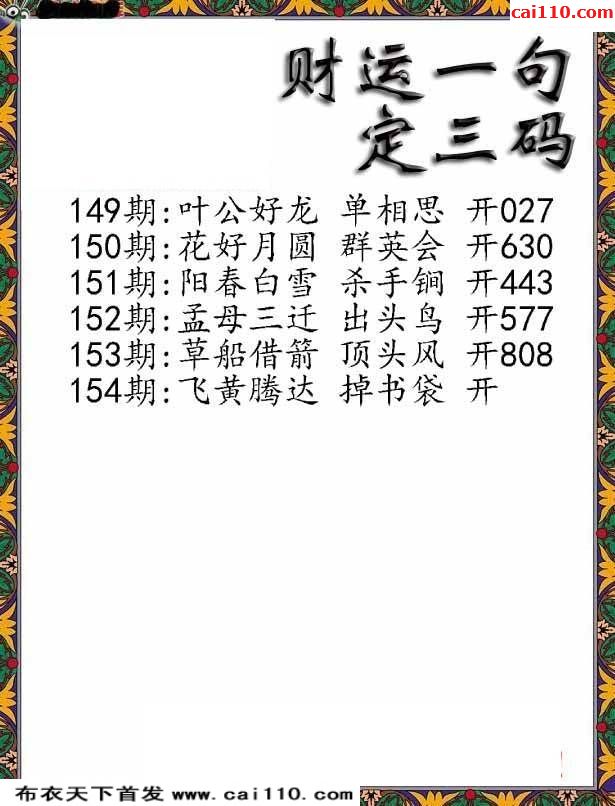 cai110.com
财运一句
定三码
149期:叶公好龙 单相思 开027
150期:花好月圆 群英会 开630
151期:阳春白雪 杀手锏 开443
152期:孟母三迁 出头鸟 开577
153期:草船借箭 顶头风 开808
154期:飞黄腾达 掉书袋 开
布衣天下首发 www.cai110.com